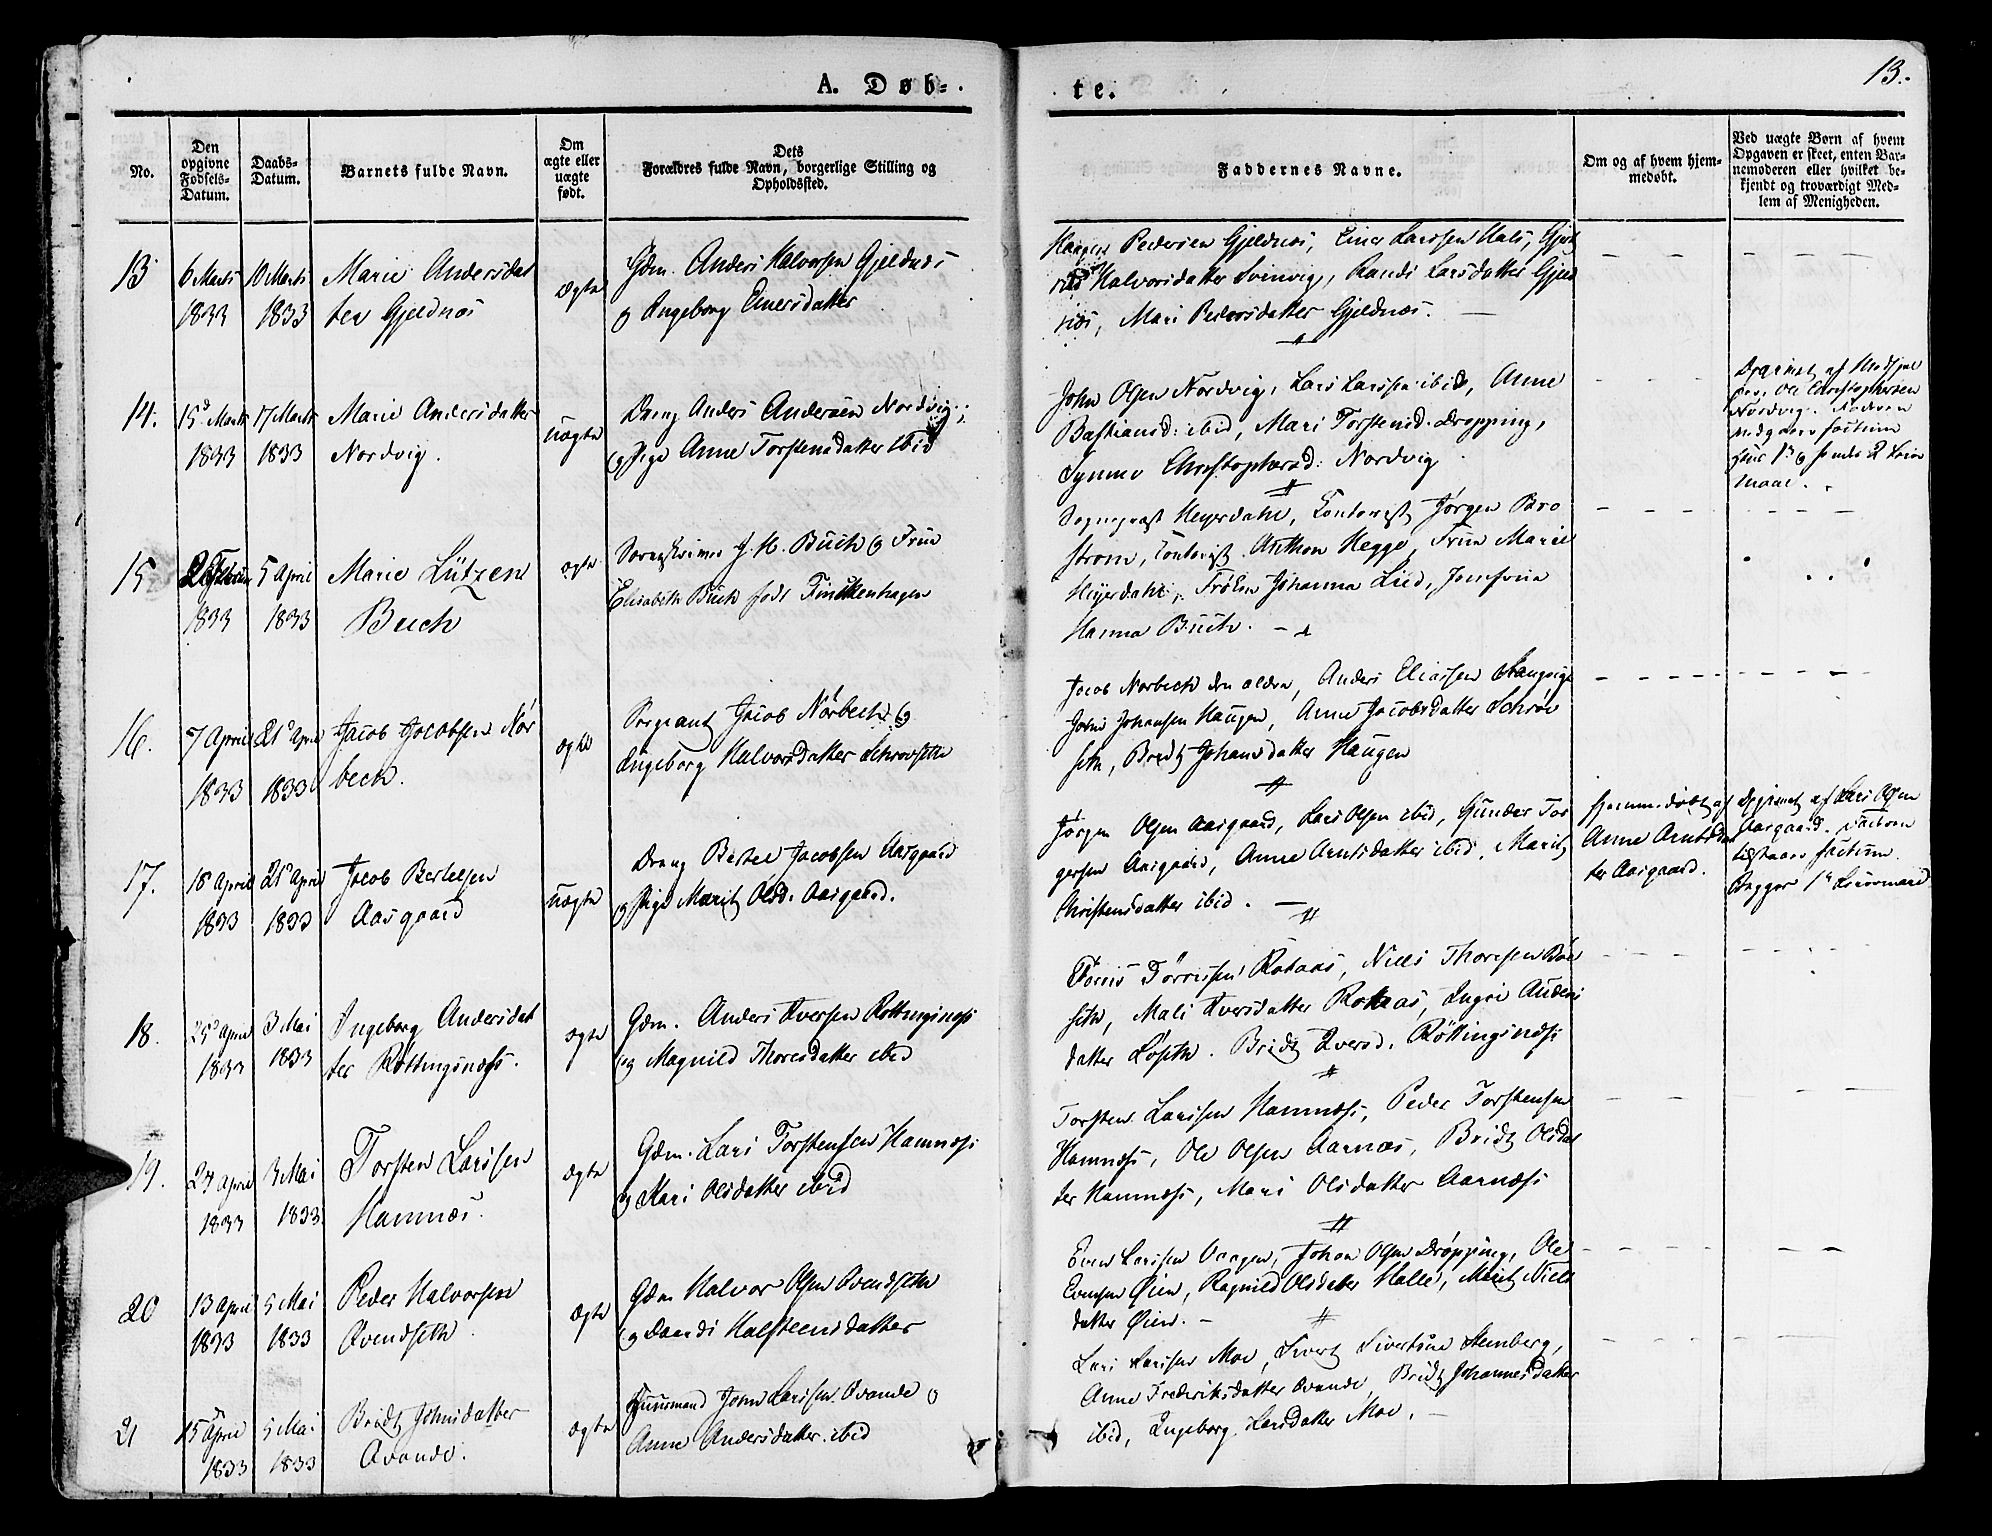 A. Døb=
te.
13.
No.
Den
opgivne
Fødsels-
Datum.
Daabs-
Datum.
Barnets fulde Navn.
Om
ægte eller
uægte
født.
Dets
Forældres fulde Navn, borgerlige Stilling og
Opholdssted.
Faddernes Navne.
Om og af hvem hjem-
medøbt.
Ved uægte Børn af hvem
Opgaven er skeet, enten Bar-
nemoderen eller hvilket be-
kjendt og troværdigt Med-
lem af Menigheden.
13
6 Marts
1833
10 Marts
1833
Marie Andersdat
ter Gjeldnæs
ægte
Gdm. Anders Halvorsen Gjeldnæs
og Ingeborg Einersdatter
Pedersen Gjeldnæs, Einer Larssen Hals,
Halvorsdatter Svinvig, Randi Larsdatter Gjeld
næs, Mari Pedersdatter Gjeldnæs.
14.
15d Marts
1833
17 Marts
1833
Marie Andersdatter
Nordvig.
uægte
Dreng Anders Andersen Nordvig
og Pige Anne Torstensdatter ibid
John Olsen Nordvig, Lars Larssen ibid, Anne
Bastiansd: ibid, Mari Torstensd. Dropping,
Synnev Christophersd: Nordvig
af
Ole Christophersen
Nordvig. Faderen
factum
1ste
maal.
15
1833
5 April
1833
Marie Lützen
Buch
ægte
J. H. Buch og Frue
Elisabeth Buch født Finckenhagen
Sogneprest Heyerdahl, Contorist Jørgen Bro
strøm, Contorist Anthon Hegge, Frue Marie
Heyerdahl, Frøken Johanna Lied, Jomfrue
Hanna Buch.
16.
7 April
1833
21d April
1833
Jacob Jacobsen Nør
bech.
ægte
Sergeant Jacob Nørbech og
Ingeborg Halvorsdatter Schrovseth
Jacob Nørbech den ældre, Anders Eliassen Stangvig
John Johansen Haugen, Anne Jacobsdatter Schrøv
seth, Bridt Johansdatter Haugen
17.
18 April
1833
21d April
1833
Jacob Bertelsen
Aasgaard
uægte
Dreng Bertel Jacobsen Aasgaard
og Pige Marit Olsd. Aasgaard.
Jørgen Olsen Aasgaard, Lars Olsen ibid, Gunder Tor
gersen Aasgaard, Anne Arntsdatter ibid, Marit
Christensdatter ibid.
hjemmedøbt af
Anne Arntsdat
ter Aasgaard.
Opgivet af Lars Olsen
Aasgaard. Faderen
tilstaaer factum.
Begges 1ste Leiermaal
18.
25d April
1833
3 Mai
1833
Ingeborg Andersdat
ter Røttingsnæss.
ægte
Gdm. Anders Iversen Rottingsnæss
og Magnild Thoresdatter ibid
Tørris Tørrissen Rokaas, Niels Thoresen Bøv
seth, Mali Iversdatter Rokaas, Ingri Anders
datter Løseth. Bridt Iversd. Røttingsnæss
19.
27 April
1833
3 Mai
1833
Torsten Larssen
Hamnæs.
ægte
Gdm. Lars Torstensen Hamnæss
og Mari Olsdatter ibid
Torsten Larssen Hamnæss, Peder Torstensen
Hamnæss, Ole Olsen Aarnæs, Bridt Olsdat
ter Hamnæss, Mari Olsdatter Aarnæss
20
13 April
1833
5 Mai
1833
Peder Halvorsen
Qvendseth
ægte
Gdm Halvor Olsen Qvendseth
og Randi Halsteensdatter
Even Larssen Vaagen, Johan Olsen Drøpping, Ole
Evensen Øien, Ragnild Olsdatter Halle, Marit Niels
datter Øien.
21
15 April
1833
5 Mai
1833
Bridt Johnsdatter
Qvande.
ægte
Huusmand John Larssen Qvande og
Anne Andersdatter ibid
Lars Larssen Moe, Sivert Sivertsen Stenberg,
Anne Frederiksdatter Qvande, Bridt Johannesdatter
ibid, Ingeborg Larsdatter Moe.